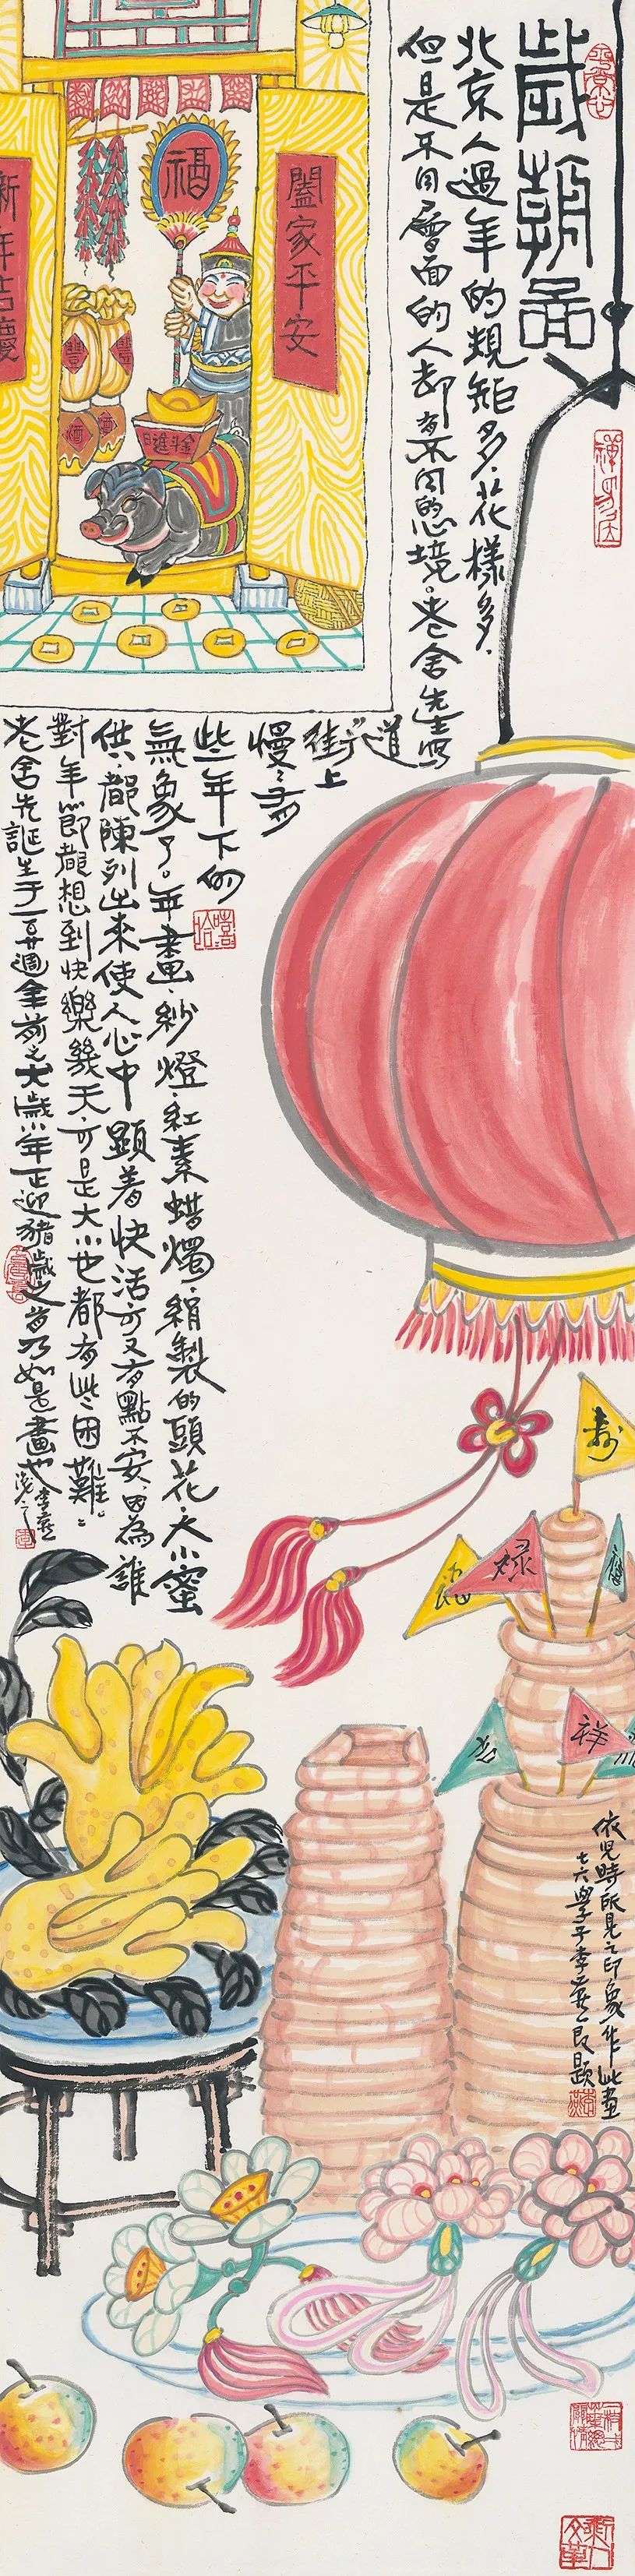 歲朝圖
北京人過年的規矩多．花樣多．
但是不同層面的人却有不同的心境。老舍先生寫
道“街上
慢慢有
些年下的
氣象了。年畫．紗燈．紅素蜡燭．絹製的頭花．大小蜜
供．都陳列出來使人心中顯着快活可又有點不安．因為誰
對年節都想到快樂幾天．可是大小也都有些困難。”
老舍先誕生于一百廿週年前之大歲小年正迎豬歲之首乃如是畫也
福
闔家平安
新年吉慶
豐
豐
酒
酒
日進斗金
壽
福
禄
禧
吉
祥
依兒時所見之印象作此畫
七六學子李燕一良題